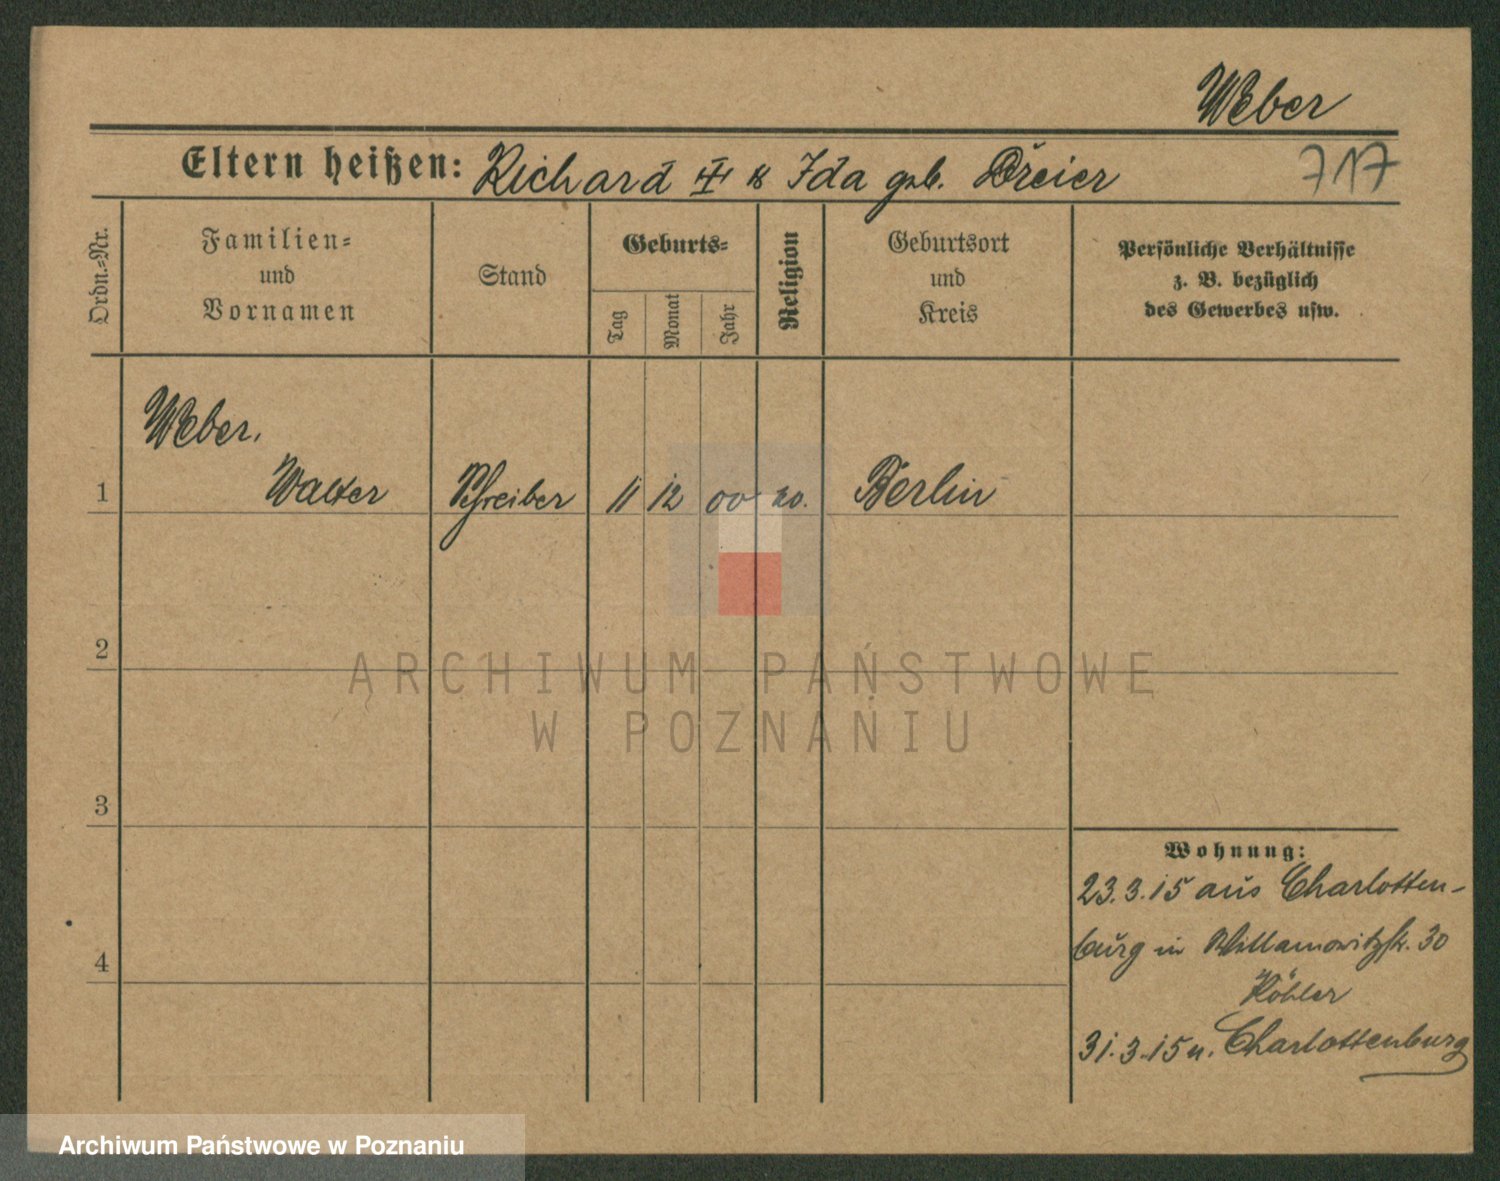 Weber
Eltern heißen: Richard & Ida geb. Dreier
717
Ordn.=Nr.
Familien=
und
Vornamen
Stand
Geburts=
Tag
Monat
Jahr
Religion
Geburtsort
und
Kreis
Persönliche Verhältnisse
z. B. bezüglich
des Gewerbes usw.
Weber,
1 Walter Schreiber 11 12 00 Berlin
2
ARCHIWUM PAŃSTWOWE
W POZNANIU
3
Wohnung:
23.3.15 aus Charlotten-
burg in 30
4
Köhler
31.3.15 n. Charlottenburg
Archiwum Państwowe w Poznaniu